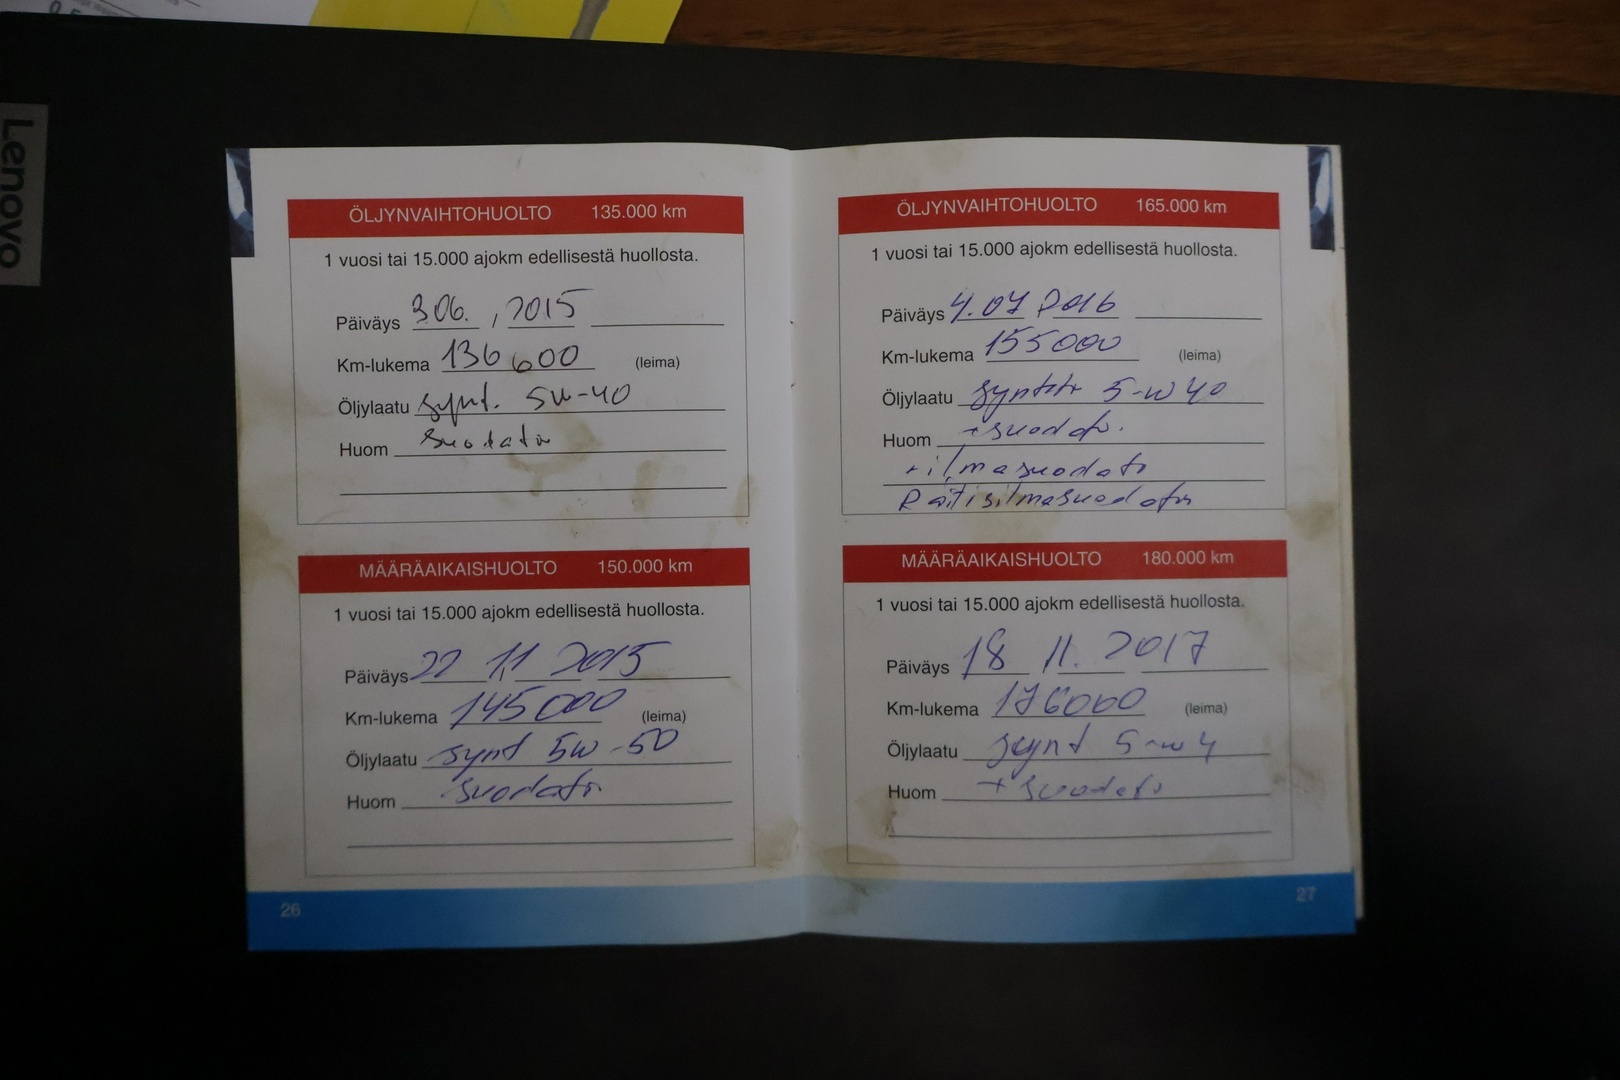 Lenovo
ÖLJYNVAIHTOHUOLTO 135.000 km
1 vuosi tai 15.000 ajokm edellisestä huollosta.
Päiväys 3.06. , 2015
Km-lukema 136600 (leima)
Öljylaatu synt. 5w-40
Huom suodatin
MÄÄRÄAIKAISHUOLTO 150.000 km
1 vuosi tai 15.000 ajokm edellisestä huollosta.
Päiväys 22 11 2015
Km-lukema 145000 (leima)
Öljylaatu synt 5w-50
Huom suodatin
26
ÖLJYNVAIHTOHUOLTO 165.000 km
1 vuosi tai 15.000 ajokm edellisestä huollosta.
Päiväys 4.07 2016
Km-lukema 155000 (leima)
Öljylaatu 5-w40
Huom +suodat.
+ilmasuodati
Raitisilmasuodatin
MÄÄRÄAIKAISHUOLTO 180.000 km
1 vuosi tai 15.000 ajokm edellisestä huollosta.
Päiväys 18 11. 2017
Km-lukema 176000 (leima)
Öljylaatu synt 5-w4
Huom + suodati
27